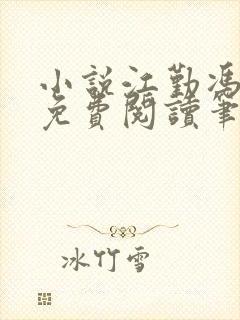 小说江勤冯
免費閱讀筆
冰竹雪